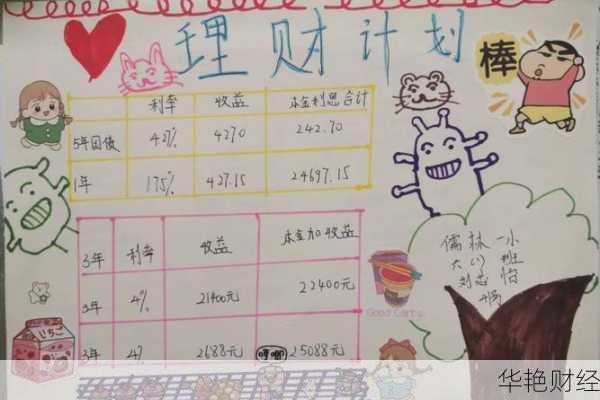 理财计划
棒
利率 收益 本金利息合计
5年国债 4.27% 4270 242.70
1年 1.75% 427.15 24697.15
3年 利率 收益 本金加收益
3年 4% 21400元 22400元
3年 4% 2688元 25088元
儒林一小
六(八)班
Good Carbs
いちご
华艳财经